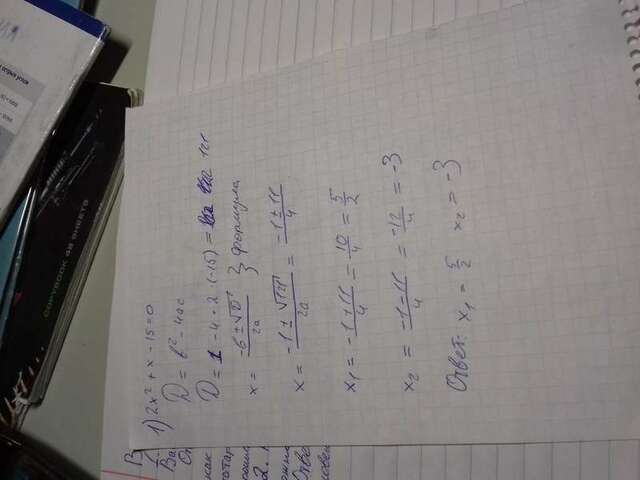 COPYBOOK 48 SHEETS
1) 2x² + x - 15 = 0
D = b² - 4ac
D = 1 - 4 · 2 · (-15) = 121
x = \frac{-b ± √D}{2a} } формула
x = \frac{-1 ± √121}{2a} = \frac{-1 ± 11}{4}
x₁ = \frac{-1 + 11}{4} = \frac{10}{4} = \frac{5}{2}
x₂ = \frac{-1 - 11}{4} = \frac{-12}{4} = -3
Ответ: x₁ = \frac{5}{2} x₂ = -3